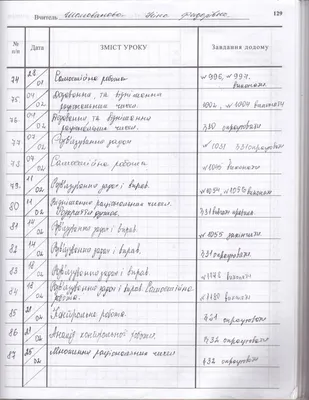 Вчитель Шалованова Ніна Федорівна 129
№ п/п Дата ЗМІСТ УРОКУ Завдання додому
74 28/01 Самостійна робота №996, №997. виконати
75 04/02 Додавання, та віднімання раціональних чисел. 1002, №1004 виконати
76 04/02 Додавання, та віднімання раціональних чисел. §30 опрацювати
77 07/02 Розв'язування задач №1031 §31 опрацювати
78 07/02 Самостійна робота. №1045 виконати
79. 11/02 Розв'язування задач і вправ. №1054, №1056 виконати
80 11/02 Віднімання раціональних чисел. §31 вивчити правила.
81 14/02 Розв'язування задач і вправ. №1055 закінчити.
82 14/02 Розв'язування задач і вправ. §31 опрацювати
83 18/02 Розв'язування задач і вправ. виконати
84 18/02 Розв'язування задач і вправ. Самостійна робота. виконати
85 21/02 Контрольна робота. опрацювати
86 21/02 Аналіз контрольної роботи. §32 опрацювати
87 25/02 Множення раціональних чисел §32 опрацювати